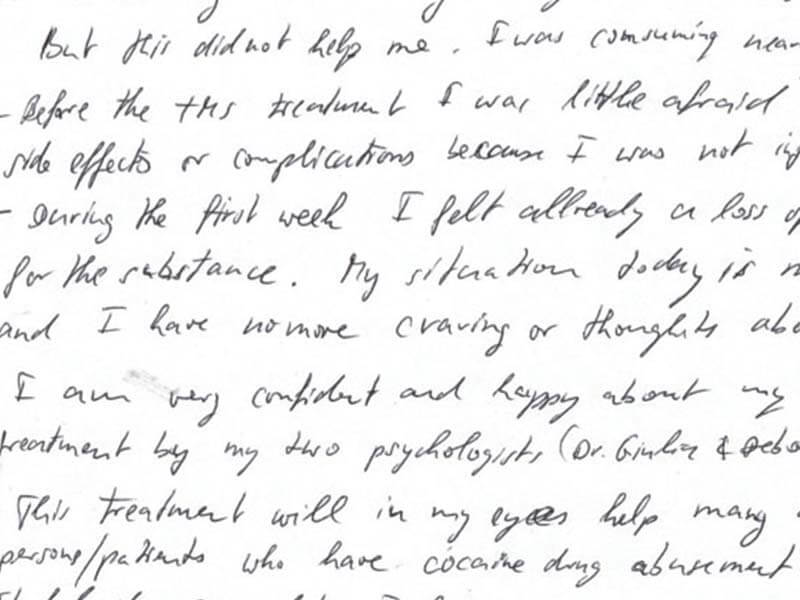 But this did not help me. I was consuming near
- Before the TMS treatment I was little afraid
side effects or complications because I was not
- During the first week I felt allready a loss of
for the substance. My situation today is
and I have nomore craving or thoughts abo
I am very confident and happy about my
treatment by my two psychologists (Dr. Giulia & Debo
This treatment will in my eyes help many
persons/patients who have cocaine drug abusement